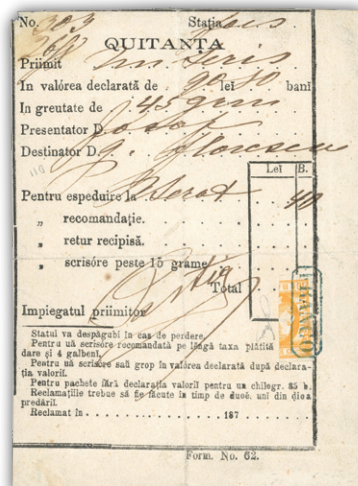 No. 303 Stația
QUITANȚA
Priimit un scris
In valórea declarată de 90 lei 80 bani
In greutate de 45 grm
Presentator D. Iosef
Destinator D. G. Florescu
Lei B.
Pentru espeduire la 40
„ recomandație.
„ retur recipisă.
„ scrisóre peste 15 grame
Total
Impiegatul priimitor
FRANCO
Statul va despăgubi în cas de perdere.
Pentru uă scrisóre recomandată pe lângă taxa plătită
dare și 4 galbeni.
Pentru uă scrisóre sau grop în valórea declarată după declara-
ția valorii.
Pentru pachete fără declarația valorii pentru un chilogr. 85 b.
Reclamațiile trebue să fie făcute în timp de duoĕ. uni din dioa
predării.
Reclamat în 187
Form. No. 62.